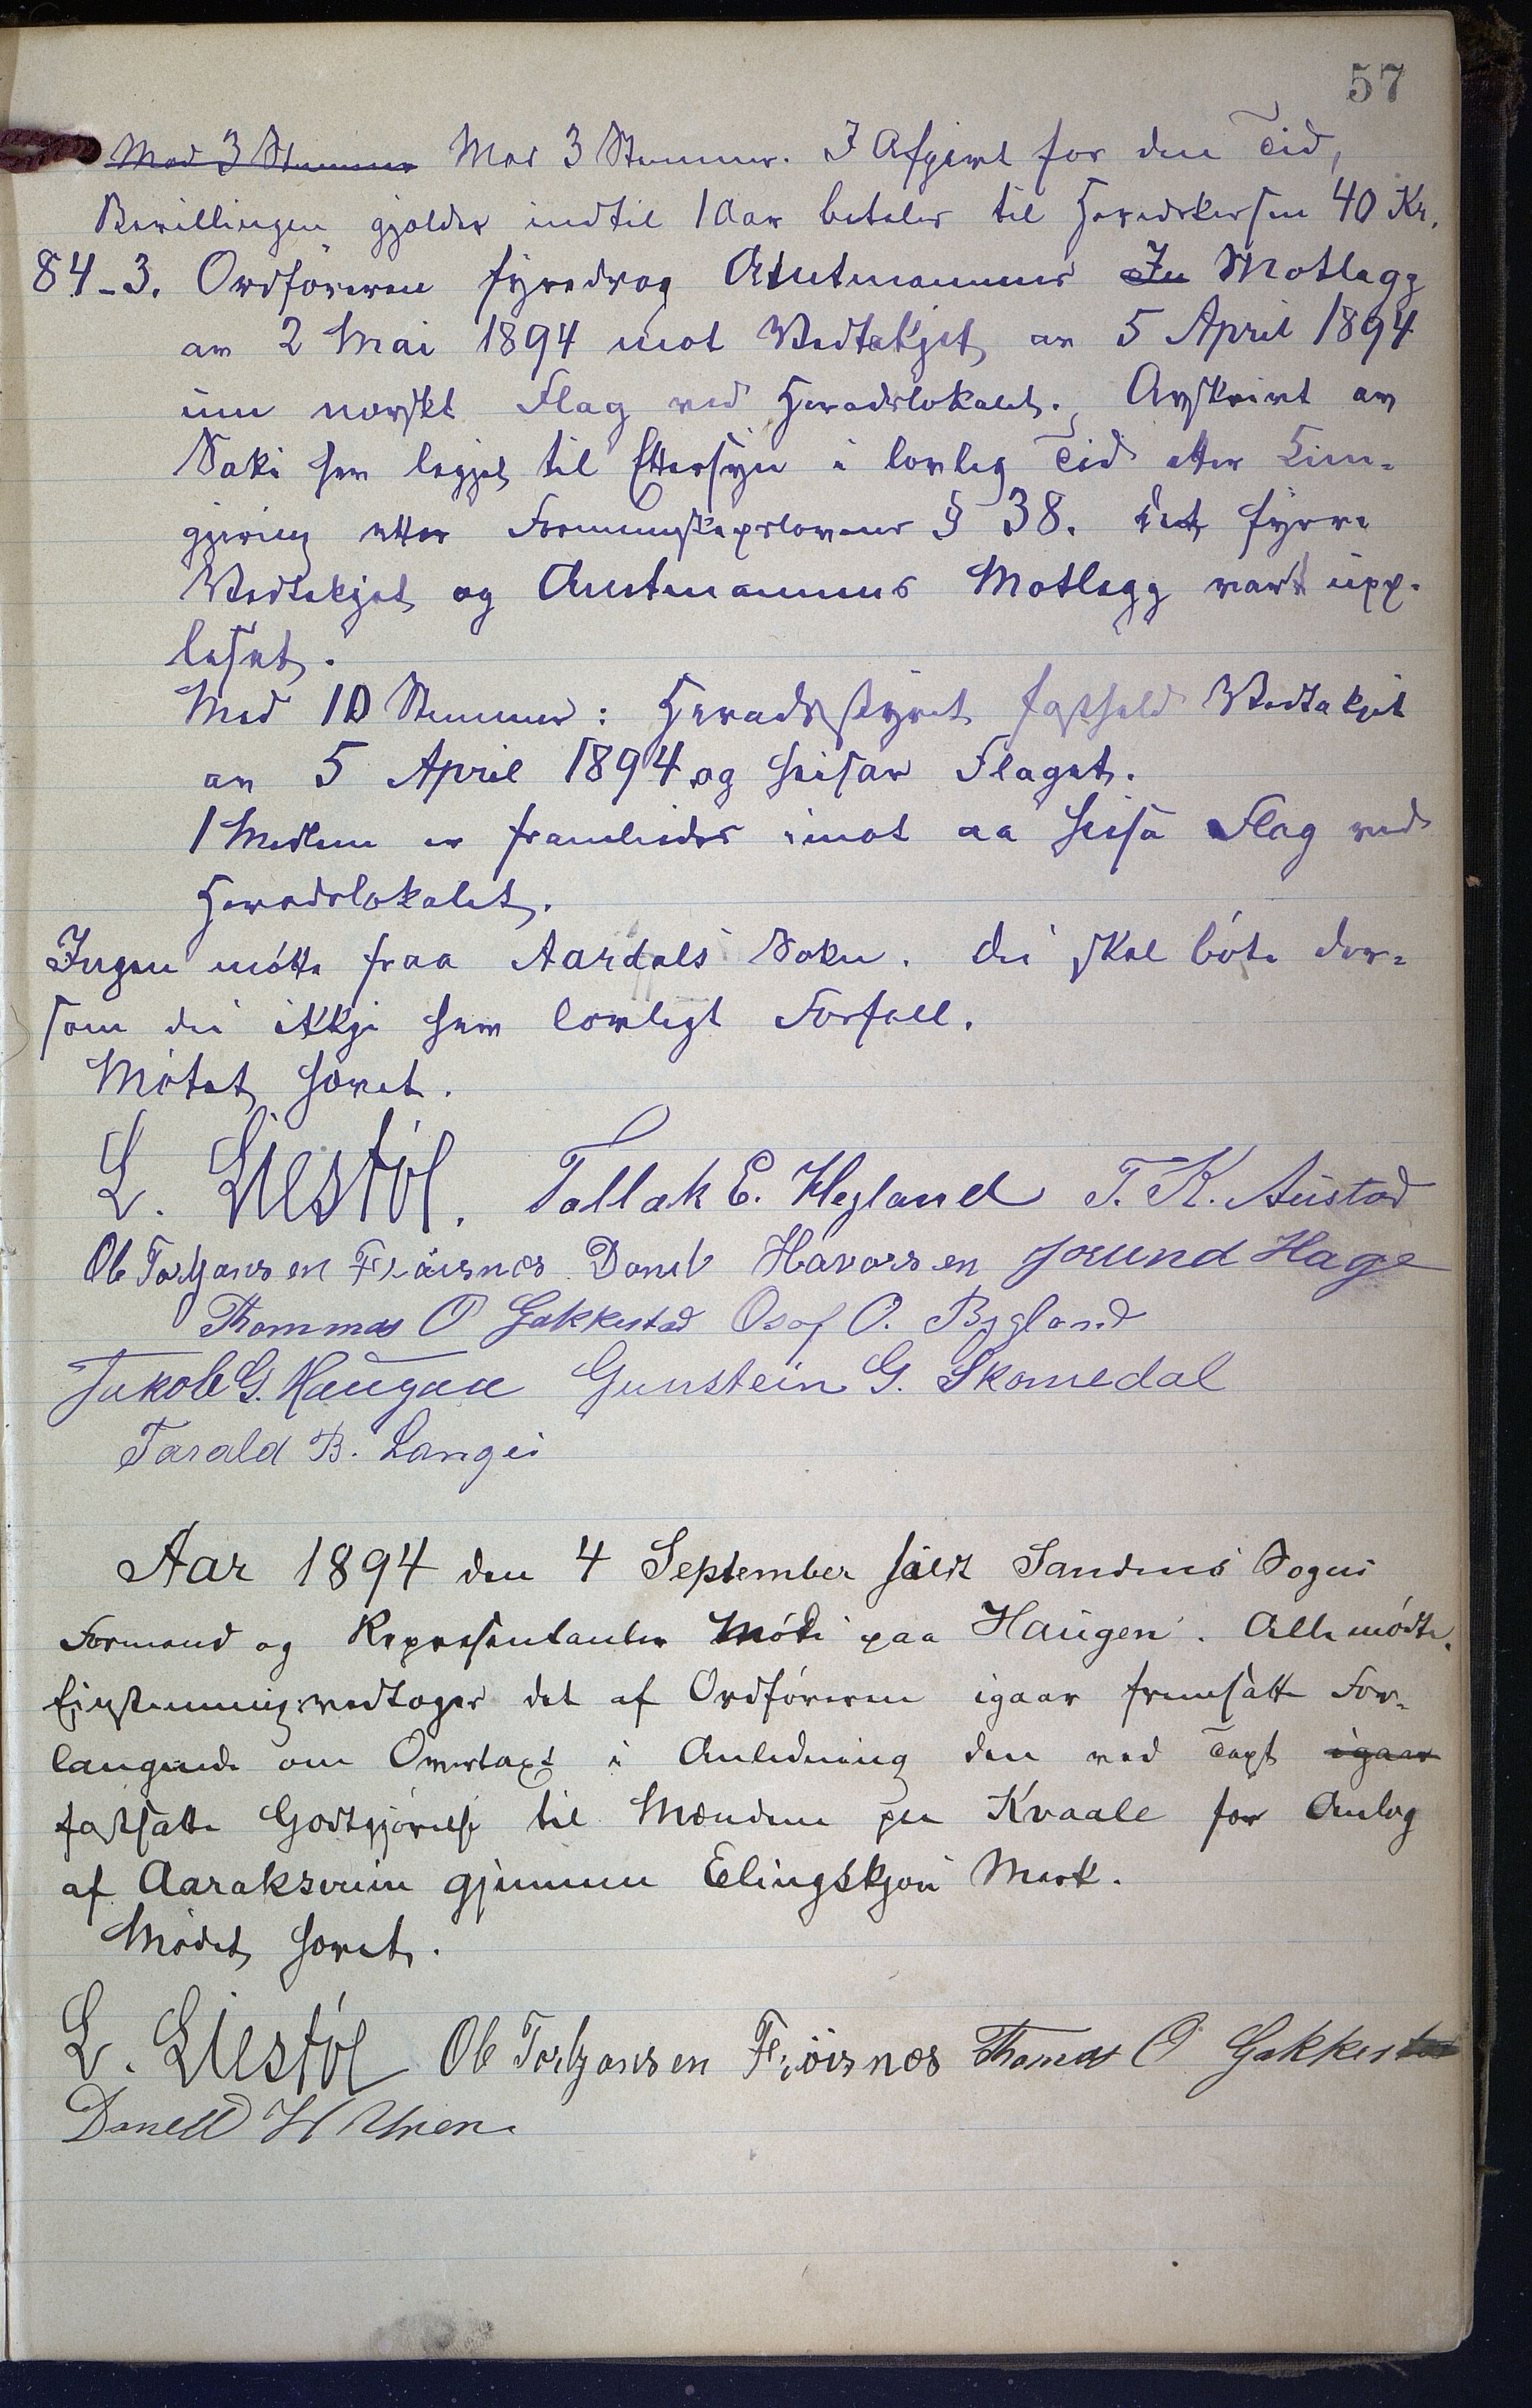 57
Mod 3 Stemmer Mod 3 Stemmer. I Afgivt for den Tid,
Bevillingen gjelder indtil 1 Aar betales til Heradskassen 40 Kr.
84-3. Ordføraren fyredrog Amtmannens In Motlegg
av 2 Mai 1894 mot Vedtakjet av 5 April 1894
um norskt Flag ved Heradslokalet. Avskrivt av
Saki hev legjet til Ettersyn i lovleg Tid etter Lim-
gjering etter Formennskapslovens § 38. Det fyrre
Vedtakjet og Amtmannens Motlegg vart upp-
leset.
Med 10 Stemmer: Heradsstyret fastheld Vedtakjet
av 5 April 1894 og heisar Flaget.
1 Medlem er framleides imot aa heisa Flag ved
Heradslokalet.
Ingen møtte fraa Aardals Sokn. Dei skal bøte der-
som dei ikkje hev lovlegt Forfall.
Møtet hevet.
L. Liestøl. Tallak E. Hegland T. K. Austad
Ole Torkjørsen Frøisnes Daniel Havorsen Jorund Hage
Thommas O Gakkestad Osof O. Bygland
Jakob G. Haugaa Gunstein G. Skomedal
Tarald B. Langei
Aar 1894 den 4 September holdt Sandnes Sogns
Formænd og Repræsentanter Møde paa Haugen. Alle mødte.
Einstemmig vedtoges det af Ordføreren igaar fremsatte For-
langende om Overtaxt i Anledning den ved Taxt igaar
fastsatte Godtgjørelse til Mændene paa Kvaale for Anlæg
af Aaraksveien gjennem Elingskjøn Mark.
Mødet hevet.
L. Liestøl Ole Torkjørsen Frøisnes Thomas O Gakkestad
Daniell H Uren